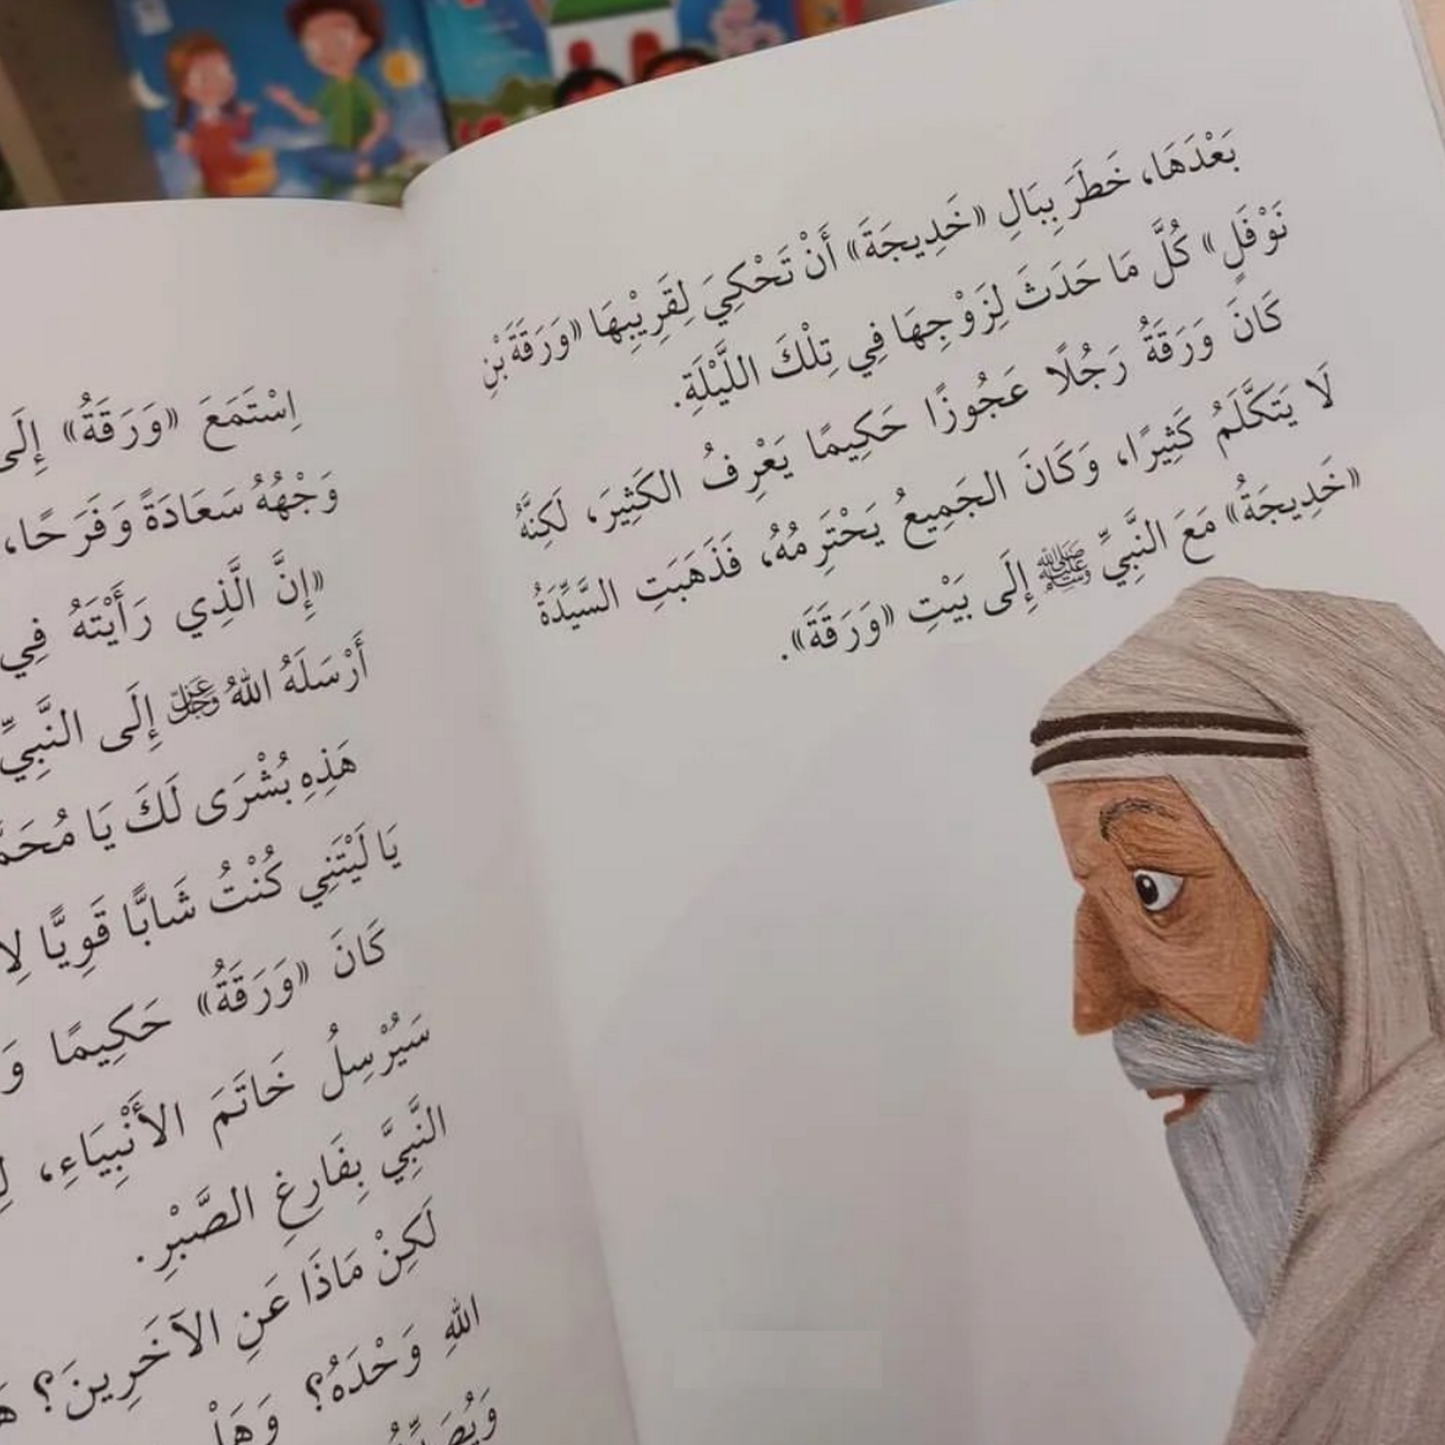 بَعْدَهَا، خَطَرَ بِبَالِ «خَدِيجَةَ» أَنْ تَحْكِيَ لِقَرِيْبِهَا «وَرَقَةَ بْنِ
نَوْفَلٍ» كُلَّ مَا حَدَثَ لِزَوْجِهَا فِي تِلْكَ اللَّيْلَةِ.
كَانَ وَرَقَةُ رَجُلًا عَجُوزًا حَكِيمًا يَعْرِفُ الكَثِيرَ، لَكِنَّهُ
لَا يَتَكَلَّمُ كَثِيرًا، وَكَانَ الجَمِيعُ يَحْتَرِمُهُ، فَذَهَبَتِ السَّيِّدَةُ
«خَدِيجَةُ» مَعَ النَّبِيِّ ﷺ إِلَى بَيْتِ «وَرَقَةَ».
اِسْتَمَعَ «وَرَقَةُ» إِلَى
وَجْهُهُ سَعَادَةً وَفَرَحًا،
«إِنَّ الَّذِي رَأَيْتَهُ فِي
أَرْسَلَهُ اللهُ عَزَّ وَجَلَّ إِلَى النَّبِيِّ
هَذِهِ بُشْرَى لَكَ يَا
يَا لَيْتَنِي كُنْتُ شَابًّا قَوِيًّا
كَانَ «وَرَقَةُ» حَكِيمًا
سَيُرْسِلُ خَاتَمَ الأَنْبِيَاءِ،
النَّبِيَّ بِفَارِغِ الصَّبْرِ.
لَكِنْ مَاذَا عَنِ الآخَرِينَ؟
اللهِ وَحْدَهُ؟ وَهَلْ